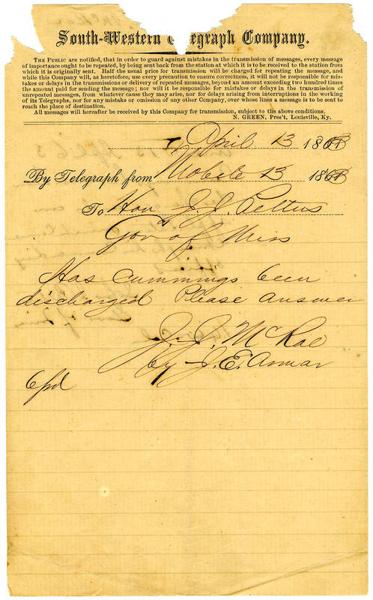 South-Western Telegraph Company.
THE PUBLIC are notified, that in order to guard against mistakes in the transmission of messages, every message
of importance ought to be repeated, by being sent back from the station at which it is to be received to the station from
which it is originally sent. Half the usual price for transmission will be charged for repeating the message, and
while this Company will, as heretofore, use every precaution to ensure correctness, it will not be responsible for mis-
takes or delays in the transmission or delivery of repeated messages, beyond an amount exceeding two hundred times
the amount paid for sending the message; nor will it be responsible for mistakes or delays in the transmission of
unrepeated messages, from whatever cause they may arise, nor for delays arising from interruptions in the working
of its Telegraphs, nor for any mistakes or omission of any other Company, over whose lines a message is to be sent to
reach the place of destination.
All messages will hereafter be received by this Company for transmission, subject to the above conditions.
N. GREEN, Pres't, Louisville, Ky.
April 13 186
By Telegraph from Mobile 13 186
To Hon J. J. Pettus
Gov of Miss
Has Cummings been
discharged Please answer
J. J. McRae
by J. E.
6pd